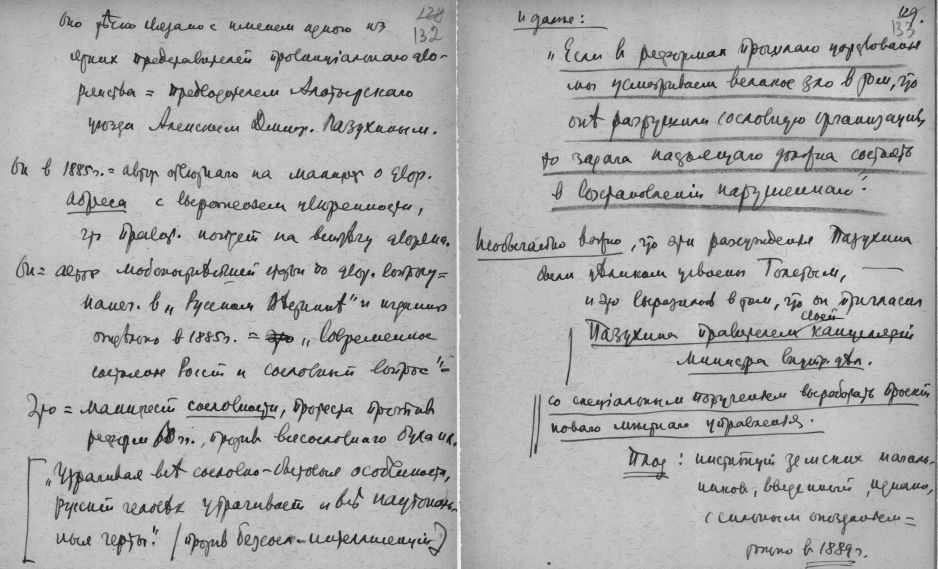 128
132
было тѣсно связано с именем одного из
ярких представителей провинціальнаго дво-
рянства = предводителем Алатырскаго
уѣзда Алексѣем Дмитр. Пазухиным.
Он в 1885 г. = автор на манифест о двор.
адреса с выраженіем увѣренности,
что правит. пойдет на встрѣчу дворянам.
Он = автор любопытнѣйшей статьи по двор. вопросу =
напеч. в „Русском Вѣстникѣ" и изданной
отдѣльно в 1885 г. = „Современное
состояніе Россіи и сословный вопрос" =
Это = манифест сословности, протеста против
реформ 60 гг., против всесословнаго
„Утрачивая всѣ сословно-бытовыя особенности,
русскій человѣк утрачивает и всѣ національ-
ныя черты." (против безсосл. интеллигенціи)
129.
133
и далѣе:
„Если в реформах прошлаго царствованія
мы усматриваем великое зло в том, что
онѣ разрушили сословную организацію,
то задача настоящаго должна состоять
в возстановленіи нарушеннаго".
Необычайно важно, что эти разсужденія Пазухина
были цѣликом усвоены Толстым, —
и это выразилось в том, что он пригласил
Пазухина правителем своей канцеляріи
министра внутр. дѣл.
со спеціальным порученіем выработать проект
новаго мѣстнаго управленія.
Плод: институт земских началь-
ников, введенный, однако,
с сильным опозданіем =
только в 1889 г.